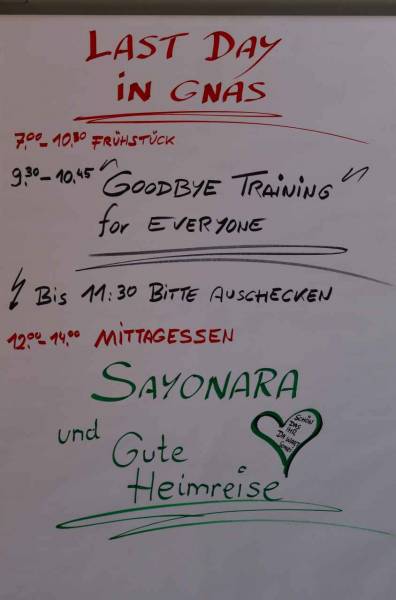 LAST DAY
IN GNAS
7.00 - 10.30 FRÜHSTÜCK
9.30 - 10.45 "GOODBYE TRAINING"
for EVERYONE
BIS 11:30 BITTE AUSCHECKEN
12.00 - 14.00 MITTAGESSEN
SAYONARA
und Gute
Heimreise
SCHÖN
DAS IHR
DA WART